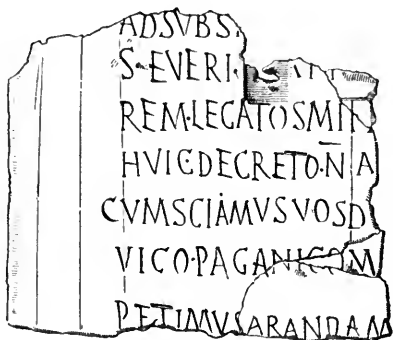 AD SVBS
S·EVERI·
REM·LEGATOS MIT
HVIC·DECRETO·N̄·A
CVM SCIAMVS VOS D
VICO·PAGANICO M
PETIMVS ARANDAM